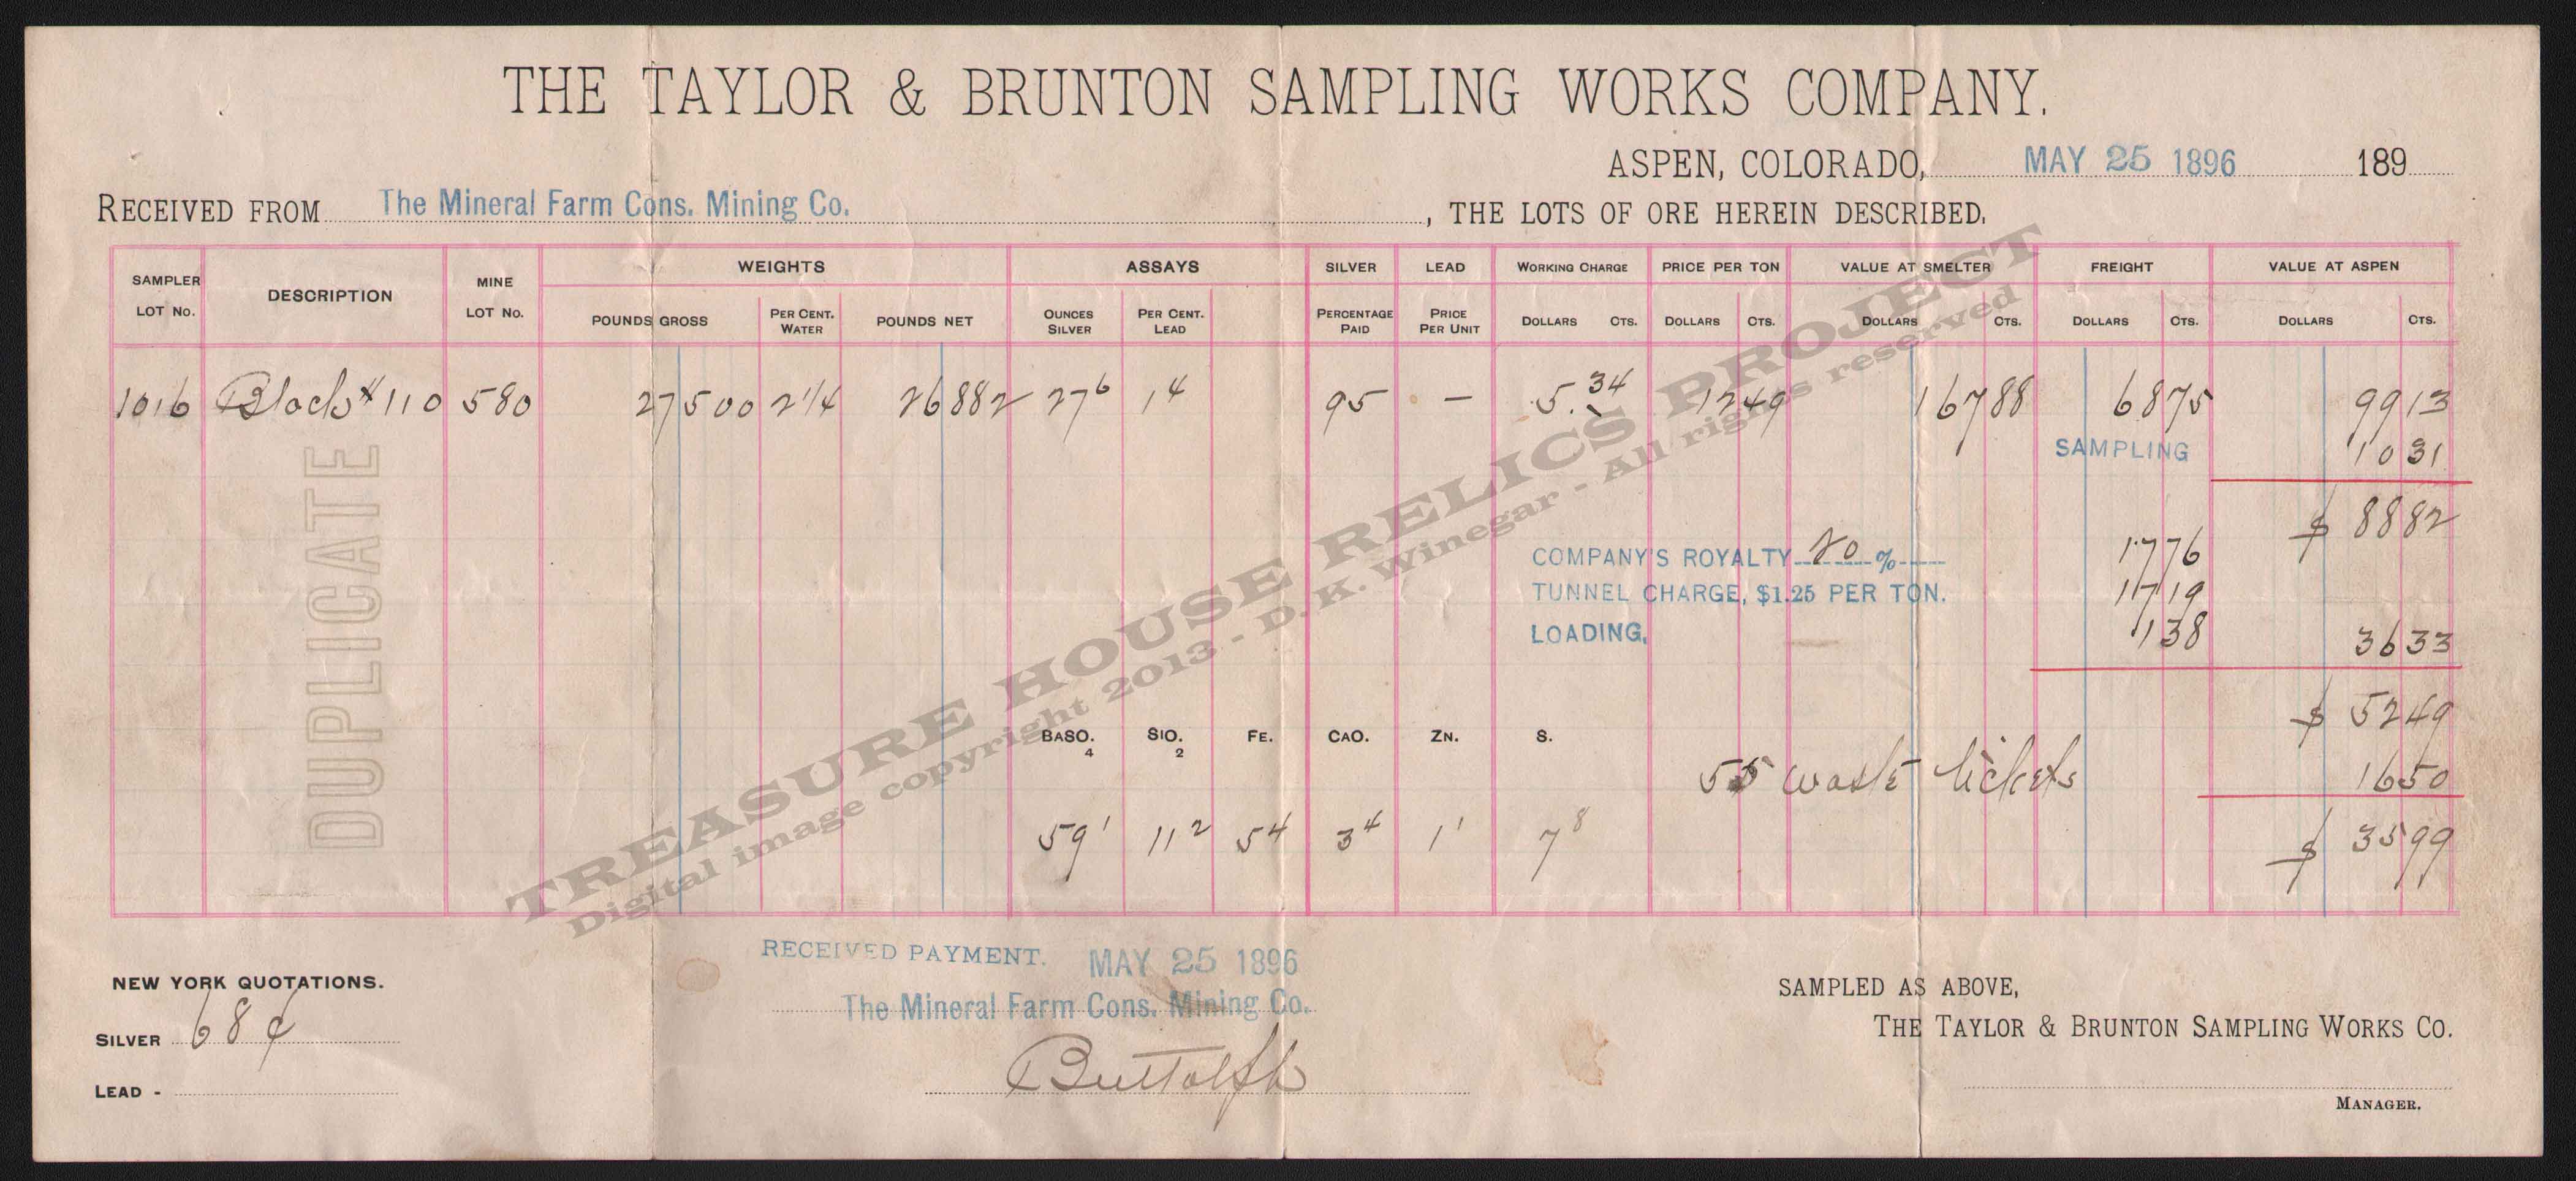 THE TAYLOR & BRUNTON SAMPLING WORKS COMPANY.
ASPEN, COLORADO, MAY 25 1896 189
RECEIVED FROM The Mineral Farm Cons. Mining Co. , THE LOTS OF ORE HEREIN DESCRIBED.
SAMPLER LOT No. DESCRIPTION MINE LOT No. WEIGHTS ASSAYS SILVER LEAD WORKING CHARGE PRICE PER TON VALUE AT SMELTER FREIGHT VALUE AT ASPEN
POUNDS GROSS PER CENT. WATER POUNDS NET OUNCES SILVER PER CENT. LEAD PERCENTAGE PAID PRICE PER UNIT DOLLARS CTS. DOLLARS CTS. DOLLARS CTS. DOLLARS CTS. DOLLARS CTS.
1016 Block # 110 580 27500 2 1/4 26882 27 6 1 4 95 — 5.34 1249 16788 6875 9913
SAMPLING 1031
$ 8882
COMPANY'S ROYALTY 20 % 1776
TUNNEL CHARGE, $1.25 PER TON. 1719
LOADING, 138 3633
$ 5249
BASO. 4 SIO. 2 FE. CAO. ZN. S.
55 waste tickets 1650
59 1 11 2 5 4 3 4 1 1 7 8 $ 3599
DUPLICATE
TREASURE HOUSE RELICS PROJECT
Digital image copyright 2013 - D. K. Winegar - All rights reserved
RECEIVED PAYMENT. MAY 25 1896
The Mineral Farm Cons. Mining Co.
Buttolph
NEW YORK QUOTATIONS.
SILVER 68¢
LEAD -
SAMPLED AS ABOVE,
THE TAYLOR & BRUNTON SAMPLING WORKS CO.
MANAGER.